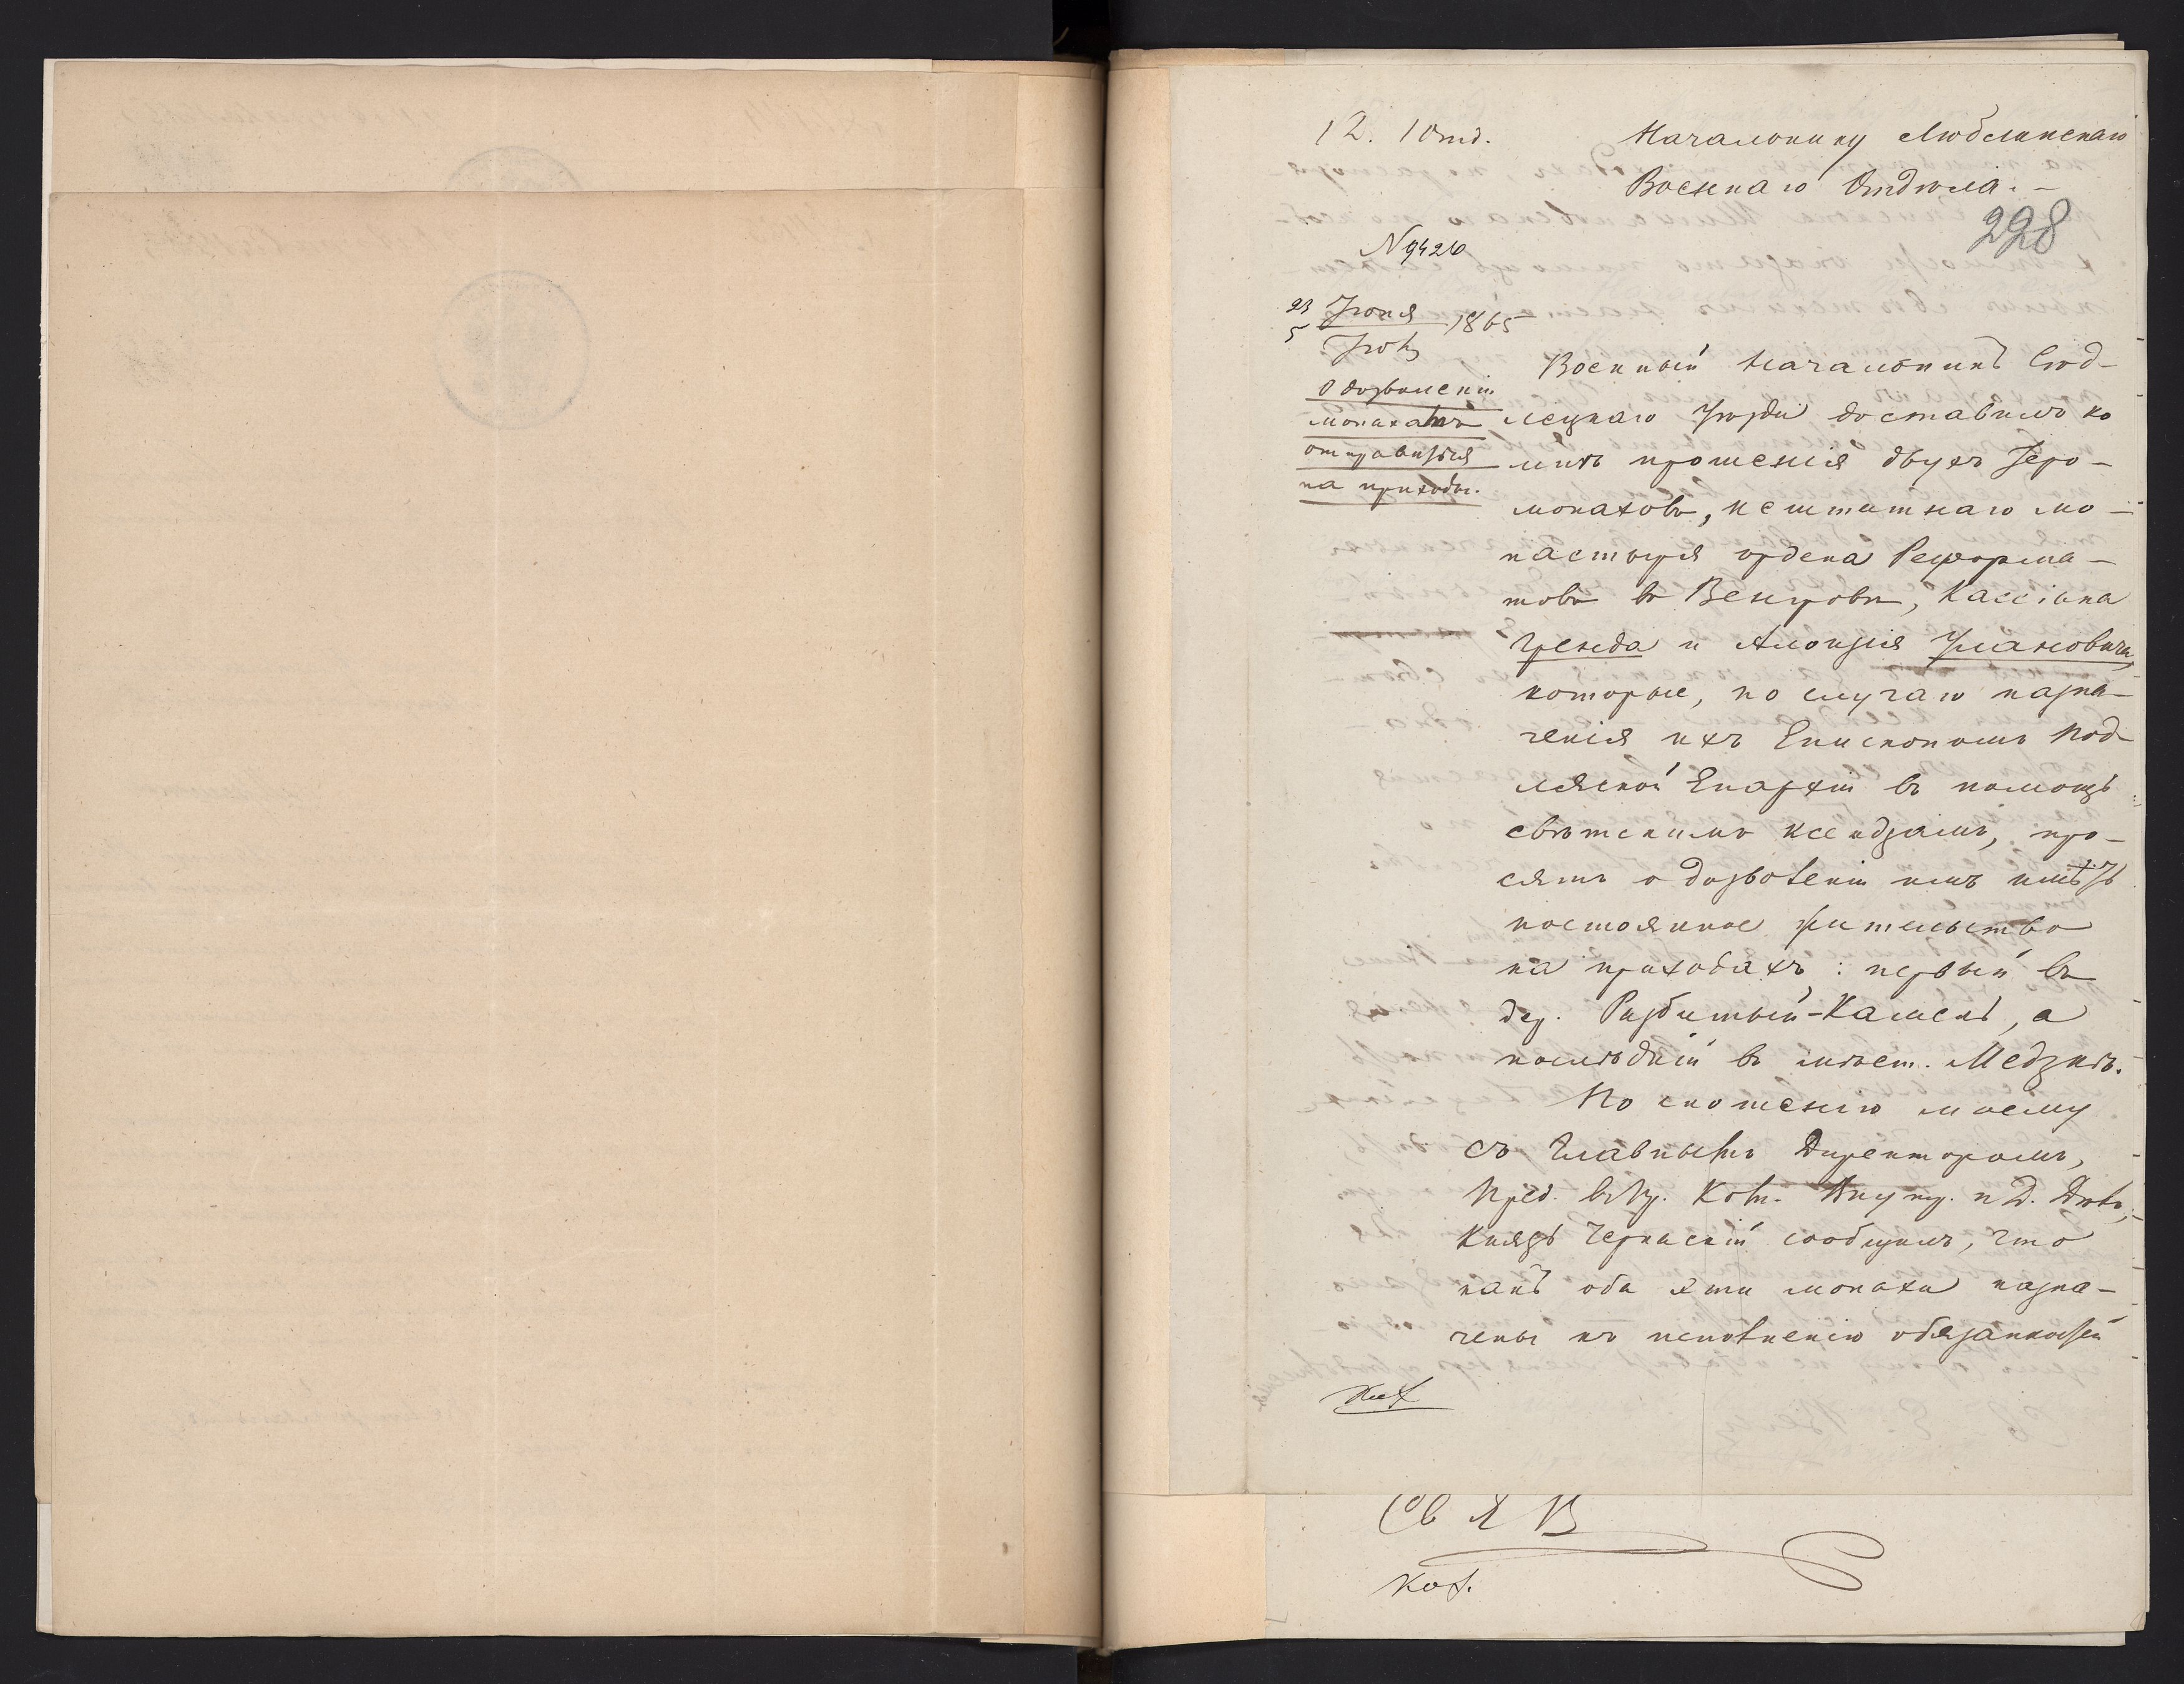 12. 1 Отд.
Начальнику Люблинскаго
Военнаго Отдѣла.
228
N 9426
23 Іюня 1865
5 Іюля
О дозволеніи
монахамъ
отправиться
на приходы.
Военный Начальникъ Сѣд-
лецкаго Уѣзда доставилъ ко
мнѣ прошенія двухъ Іеро-
монаховъ, нештатнаго мо-
настыря ордена Реформа-
товъ въ Венгровѣ, Кассіана
Гренда и Алоизія Улановича,
которые, по случаю назна-
ченія ихъ Епископомъ Под-
ляской Епархіи въ помощь
свѣтскимъ ксендзамъ, про-
сятъ о дозволеніи имъ имѣть
постоянное жительство
на приходахъ: первый въ
дер. Разбитый-Камень, а
послѣдній въ мѣст. Медзнѣ.
По сношенію моему
съ Главнымъ Директоромъ,
Пред. въ Пр. Ком. Внутр. и Д. Дѣлъ,
Князь Черкаскій сообщилъ, что
какъ оба эти монахи назна-
чены къ исполненію обязанностей
Св